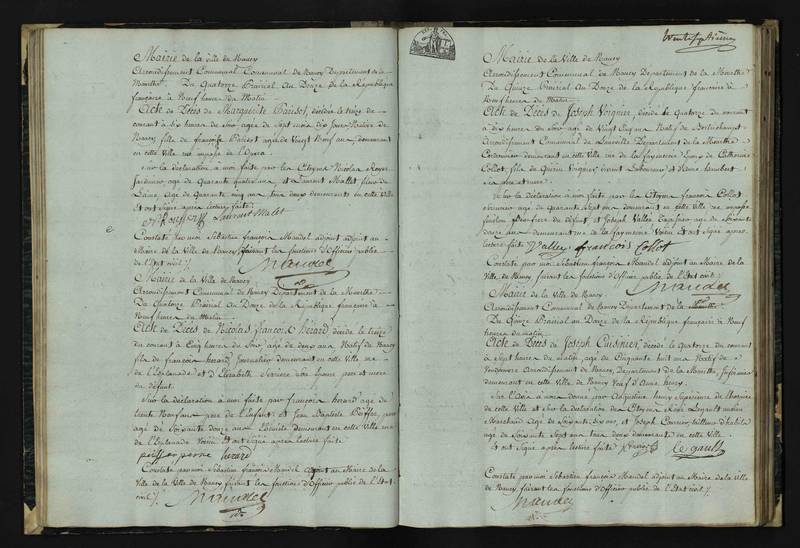 Mairie de la ville de Nancy
Arrondissement Communal de Nancy Département de la
Meurthe. Du Quatorze Prairial An Douze de la République
française à Neuf heures du Matin
Acte de Décès de Marguerite Parisot, décédée le treize du
courant à dix heures du Soir agée de Sept mois dix jours Native de
Nancy, fille de françoise Parisot agée de Vingt Neuf ans demeurant
en cette Ville rue de l'Opera.
Sur la déclaration à moi faite par les Citoyens Nicolas
agé de Quarante quatre ans et Laurent Mallet fileur de
Laine, agé de Quarante cinq ans tous deux demeurants en cette Ville
et ont Signé après lecture faite
Laurent Malet
Constaté par moi Sébastien françois Mandel adjoint au
Maire de la Ville de Nancy, faisant les fonctions d'Officier public
de l'Etat civil /.
Mandel
Mairie de la Ville de Nancy
Arrondissement Communal de Nancy Département de la Meurthe
Du Quatorze Prairial An Douze de la République française à
Neuf heures du Matin
Acte de Décès de Nicolas françois herard décédé le treize
du courant à Cinq heures du Soir, agé de deux ans Natif de Nancy
fils de françois herard, Journalier demeurant en cette Ville rue
de l'Esplanade et d'Elizabeth Son épouse ses père et mère
du défunt.
Sur la déclaration à moi faite par françois herard agé de
trente Neuf ans père de l'Enfant et Jean Baptiste
agé de Soixante douze ans demeurant en cette Ville rue
de l'Esplanade Voisin et ont Signé après lecture faite
herard
Constaté par moi Sébastien françois Mandel adjoint au Maire de la
Ville de Nancy, faisant les fonctions d'Officier public de l'Etat
civil /.
Mandel
Mairie de la Ville de Nancy
Arrondissement Communal de Nancy Département de la Meurthe
Du Quinze Prairial An Douze de la République française à
Neuf heures du Matin
Acte de Décès de Joseph Voignier, décédé le Quatorze du courant
à dix heures du Soir agé de Vingt Cinq ans Natif de
Arrondissement Communal de Lunéville Département de la Meurthe
Cordonnier demeurant en cette Ville rue de la fayencerie Epoux de Catherine
Collot, fils de Voignier vivant Laboureur et d'Anne humbert
Sur la déclaration à moi faite par les Citoyens françois Collot
agé de Quarante Sept ans demeurant en cette Ville
beau frere du défunt et Joseph Vallée agé de Soixante
douze ans demeurant rue de la fayencerie Voisin et ont Signé après
lecture faite Vallee francois Collot
Constaté par moi Sébastien françois Mandel adjoint au Maire de la
Ville de Nancy faisant les fonctions d'Officier public de l'Etat civil /.
Mandel
Mairie de la Ville de Nancy
Arrondissement Communal de Nancy Département de la Meurthe
Du Quinze Prairial An Douze de la République française à Neuf
heures du matin
Acte de Décès de Joseph Cuisnier, décédé le Quatorze du courant
à Sept heures du matin, agé de Cinquante huit ans Natif de
Vandoeuvre Arrondissement de Nancy, Département de la Meurthe,
demeurant en cette Ville de Nancy Veuf d'Anne henry.
Sur l'avis à nous donné par henry Supérieure de l'hospice
de cette Ville et Sur la déclaration des Citoyens
Marchand agé de Soixante dix ans, et Joseph
agé de Soixante Sept ans tous deux demeurants en cette Ville
et ont Signé après lecture faite le gault
Constaté par moi Sébastien françois Mandel adjoint au Maire de la Ville
de Nancy, faisant les fonctions d'Officier public de l'Etat civil /.
Mandel